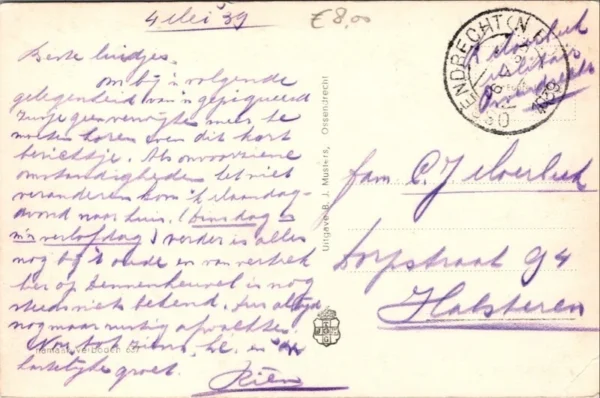 4 Mei 39
€8,00
Beste luidjes.
Om bij 'n volgende
gelegenheid van 'n gepiqueerd
Zusje geen verwijten meer te
moeten horen even dit kort
berichtje. Als onvoorziene
omstandigheden het niet
veranderen kom 'k Maandag-
avond naar huis. (Dinsdag is
m'n verlofdag) verder is alles
nog bij 't oude en van vertrek
hier op Dennenheuvel is nog
steeds niets bekend. Dus altijd
nog maar rustig afwachten.
Nou tot ziens, he. en
hartelijke groet.
Rien
Uitgave B. J. Musters, Ossendrecht
OSSENDRECHT (N.B.)
1939
Militair
Ossendrecht
Fam. C. J.
Dorpstraat 94
Halsteren
Nadruk verboden